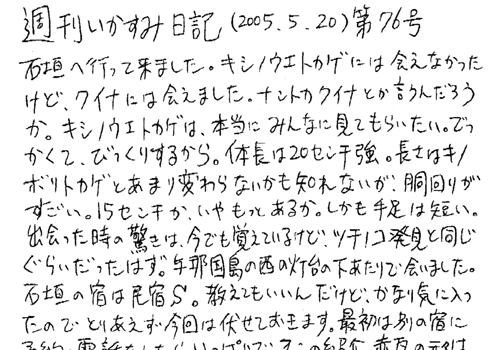 週刊いかすみ日記(2005.5.20)第76号
石垣へ行って来ました。キシノウエトカゲには会えなかった
けど、クイナには会えました。ナントカクイナとか言うんだろう
か。キシノウエトカゲは、本当にみんなに見てもらいたい。でっ
かくて、びっくりするから。体長は20センチ強。長さはキノ
ボリトカゲとあまり変わらないかも知れないが、胴回りが
すごい。15センチか、いやもっとあるか。しかも手足は短い。
出会った時の驚きは、今でも覚えているけど、ツチノコ発見と同じ
ぐらいだったはず。与那国島の西の灯台の下あたりで会いました。
石垣の宿は民宿S。教えてもいいんだけど、かなり気に入っ
たのでとりあえず今回は伏せておきます。最初は別の宿に